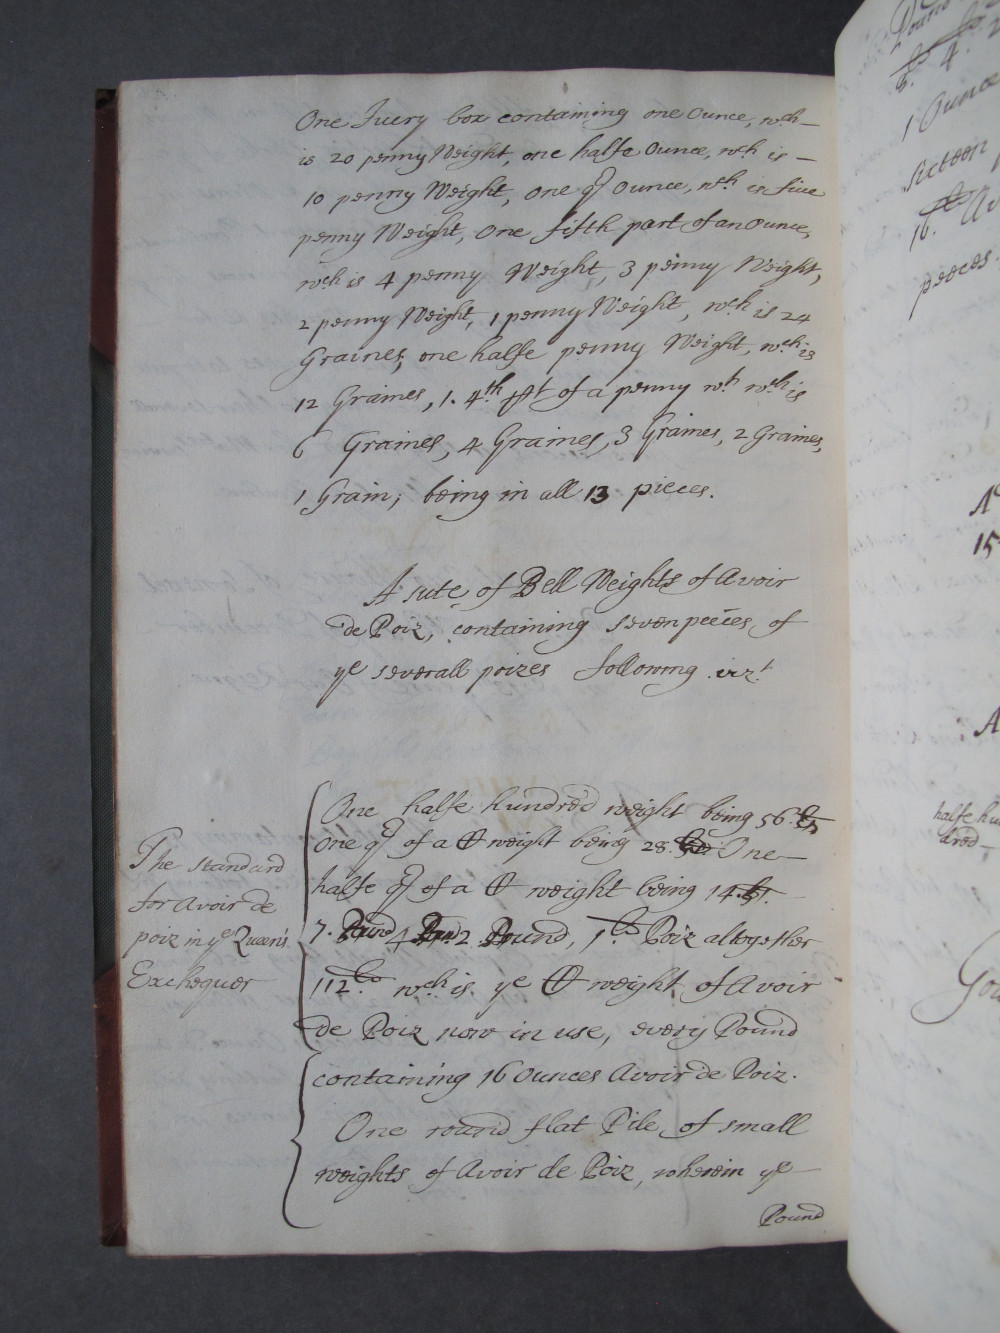 One Ivery box containing one Ounce, wch
is 20 penny Weight, one halfe Ounce, wch is
10 penny Weight, One qr Ounce, wch is five
penny Weight, One fifth part of an Ounce,
wch is 4 penny Weight, 3 penny Weight,
2 penny Weight, 1 penny Weight, wch is 24
Graines, one halfe penny Weight, wch is
12 Graines, 1. 4th pt of a penny wt wch is
6 Graines, 4 Graines, 3 Graines, 2 Graines,
1 Grain; being in all 13 pieces.
A sute of Bell Weights of Avoir
de Poiz, containing seven peeces of
ye severall poizes following vizt
The standard
for Avoir de
poiz in ye Queen's
Exchequer
One halfe hundred weight being 56 lbs
One qr of a C weight being 28. lbs One
halfe qr of a C weight being 14. lbs.
7. Pound 4 Pound 2 Pound, 1 lb Poiz altogether
112 lbs wch is ye C weight of Avoir
de Poiz now in use, every Pound
containing 16 Ounces Avoir de Poiz.
One round flat Pile of small
weights of Avoir de Poiz, wherein ye
Pound
Pound
4
1 Ounce
sixteen
16. Av
peeces.
15
halfe hu
dred